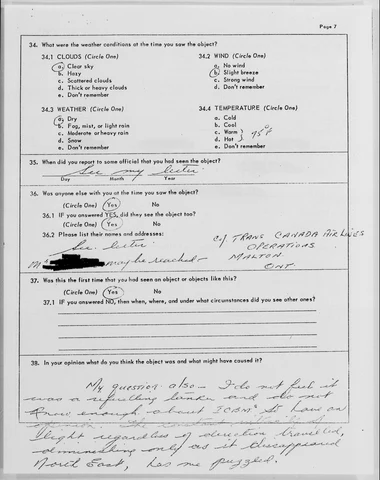 Page 7
34. What were the weather conditions at the time you saw the object?
34.1 CLOUDS (Circle One) 34.2 WIND (Circle One)
a. Clear sky a. No wind
b. Hazy b. Slight breeze
c. Scattered clouds c. Strong wind
d. Thick or heavy clouds d. Don't remember
e. Don't remember
34.3 WEATHER (Circle One) 34.4 TEMPERATURE (Circle One)
a. Dry a. Cold
b. Fog, mist, or light rain b. Cool
c. Moderate or heavy rain c. Warm
d. Snow d. Hot 75°F
e. Don't remember e. Don't remember
35. When did you report to some official that you had seen the object?
See my letter
Day Month Year
36. Was anyone else with you at the time you saw the object?
(Circle One) Yes No
36.1 IF you answered YES, did they see the object too?
(Circle One) Yes No
36.2 Please list their names and addresses:
See letter
may be reached -
c/o TRANS CANADA AIR LINES
OPERATIONS
MALTON
ONT.
37. Was this the first time that you had seen an object or objects like this?
(Circle One) Yes No
37.1 IF you answered NO, then when, where, and under what circumstances did you see other ones?
38. In your opinion what do you think the object was and what might have caused it?
My question also - I do not feel it
was a refuelling tanker and do not
know enough about ICBM's to have an
opinion. The constant
flight regardless of direction travelled,
diminishing only as it disappeared
North East, has me puzzled.